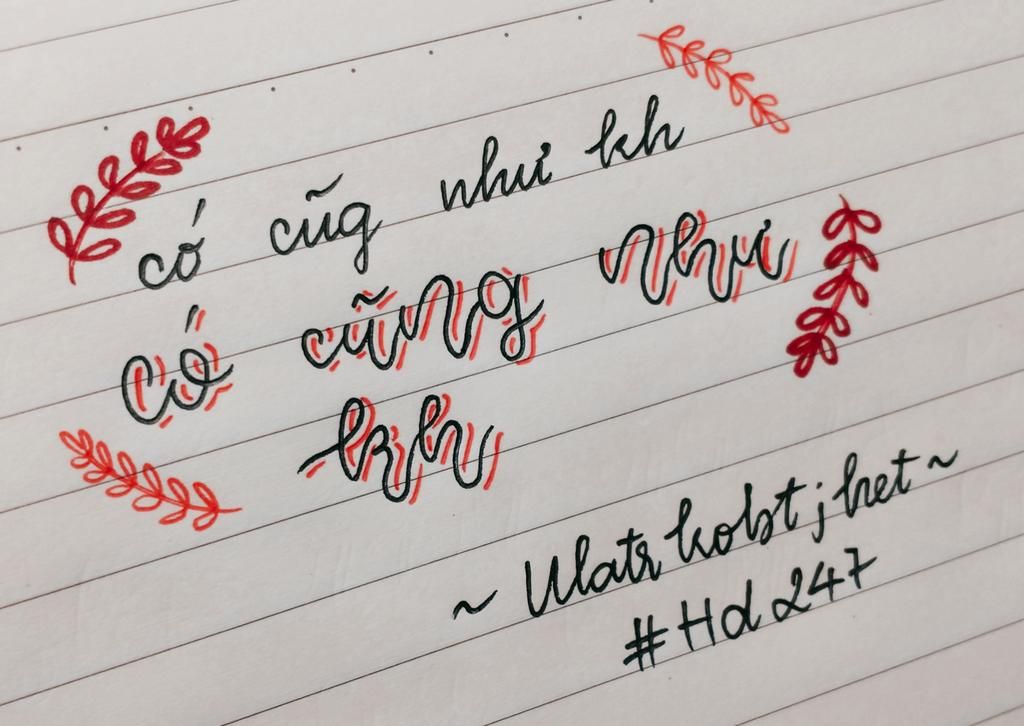 có cũg như kh
Có cũng như
kh
~ Ulatr kobt j het ~
#Hd247